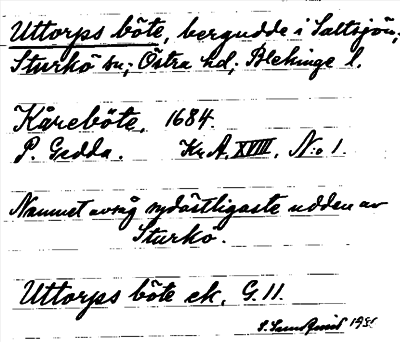 Uttorps böte, bergudde i Saltsjön,
Sturkö sn; Östra hd; Blekinge l.
Kåreböte, 1684.
P. Gedda. Kr. A. XVIII, N:o 1.
Namnet avsåg sydöstligaste udden av
Sturkö.
Uttorps böte ek. G. 11.
S. 1931